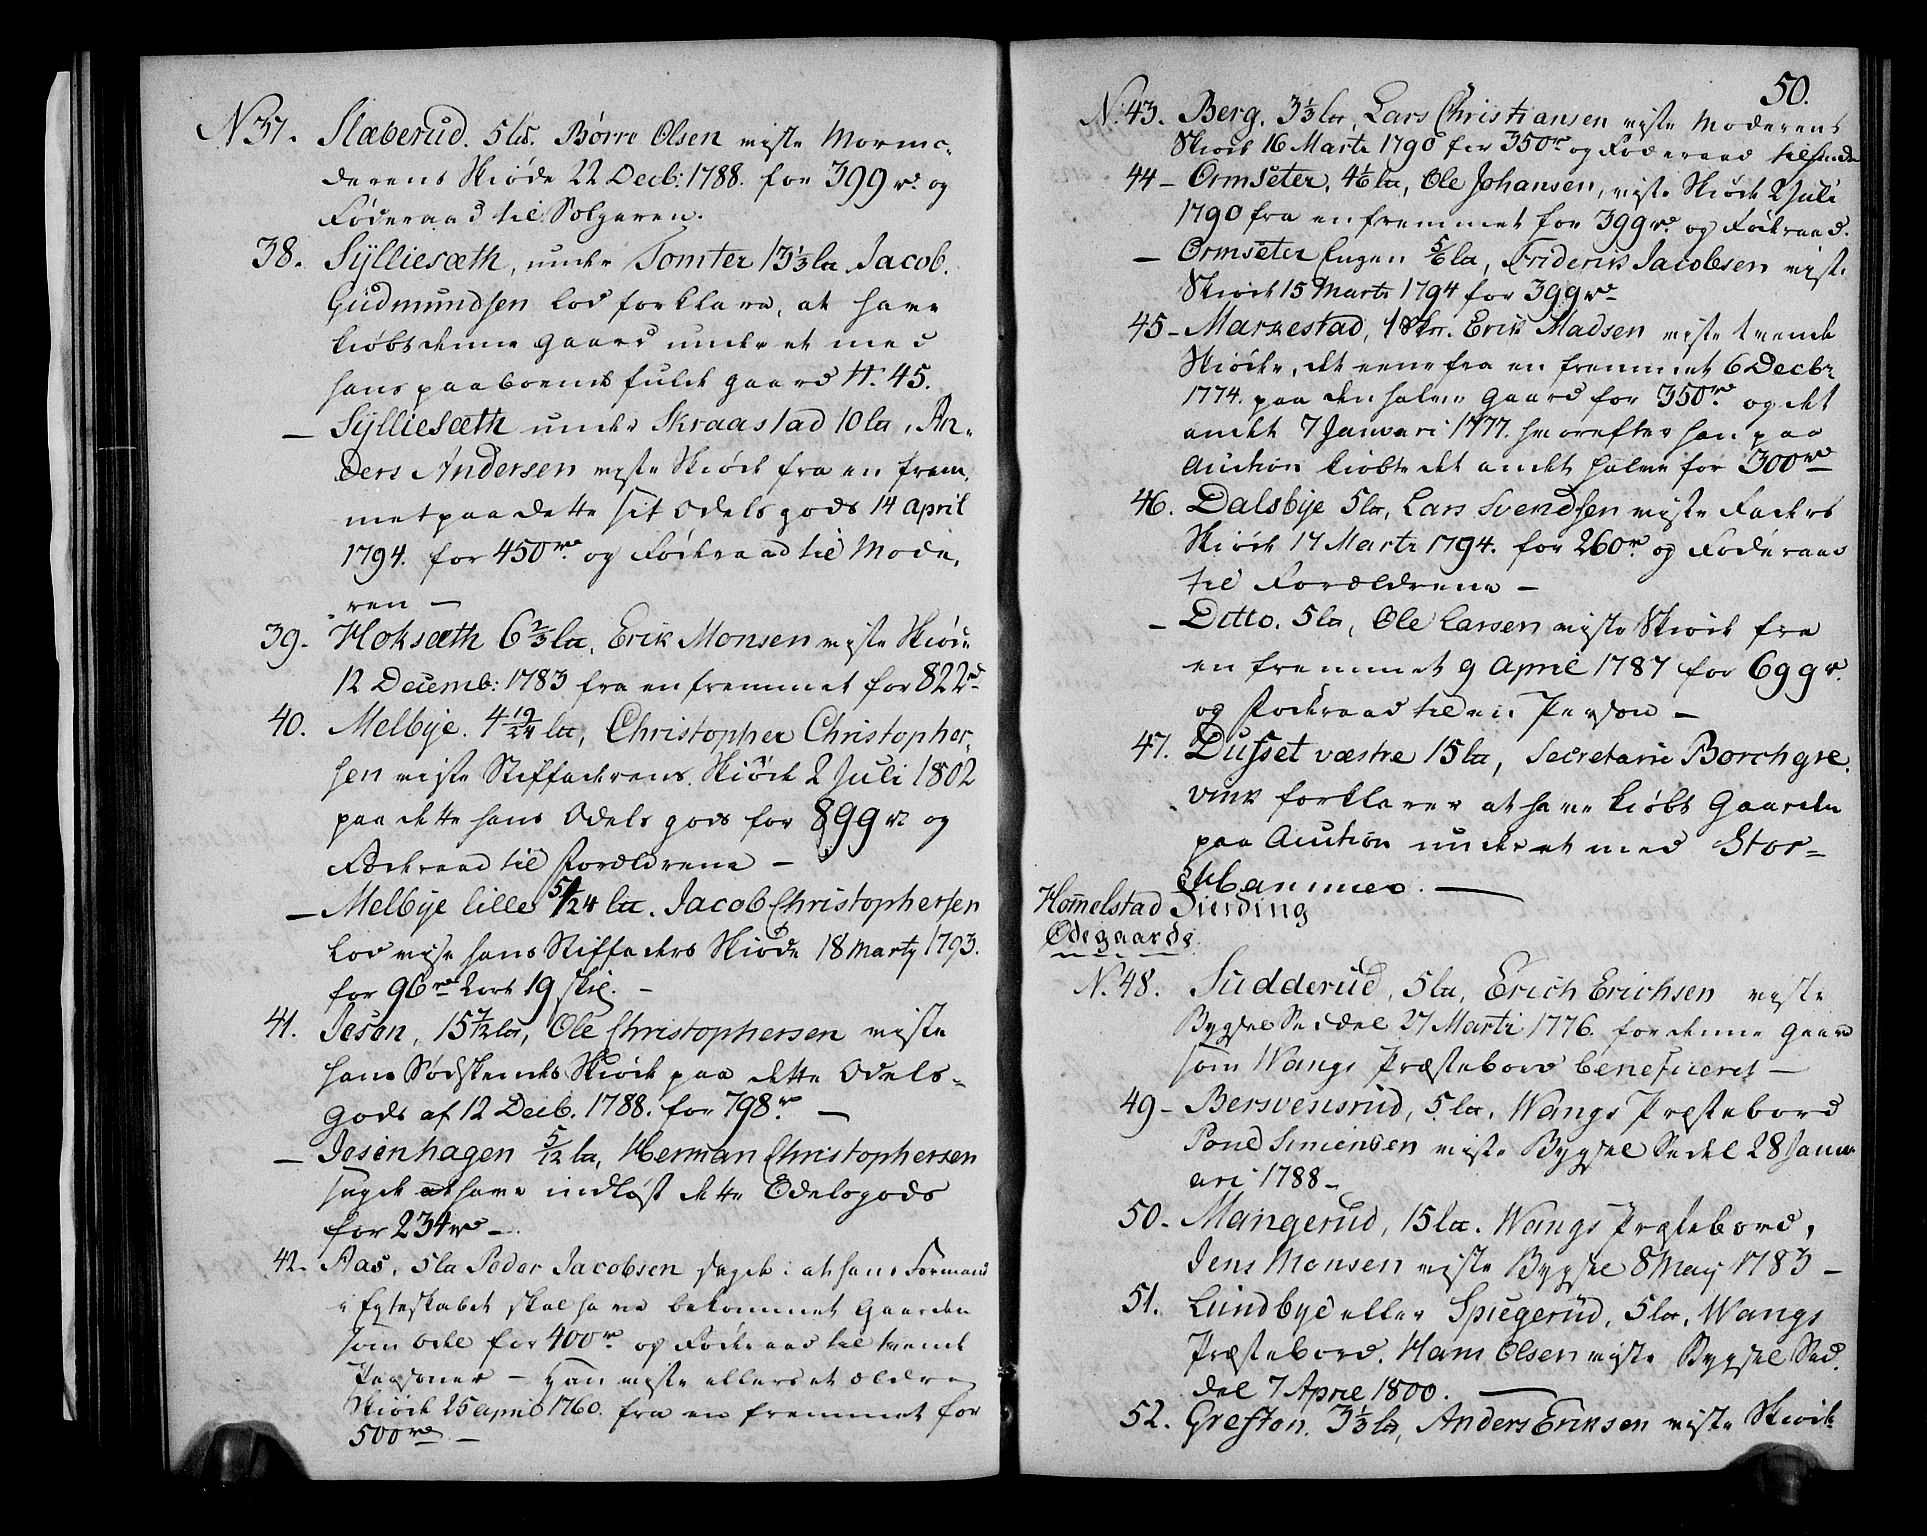 N 37. Slæberud. 5 lb. Børre Olsen viste Mormo-
derens Skiøde 22 Decb: 1788. for 399 rd og
Føderaad til Sælgeren.
38. Sÿlliesæth, under Tomter 13 1/3 lb Jacob
Gudmundsen lod forklare, at have
kiøbt denne Gaard under et med
hans paaboende fulde gaard N. 45.
— Sÿlliesæth under Skraastad 10 lb, An-
ders Andersen viste Skiøde fra en frem-
met paa dette sit Odels gods 14 April
1794. for 450 rd. og Føderaad til Mode-
ren —
39. Hoksæth 6 2/3 lb, Erik Monsen viste Skiøde
12 Decemb: 1783 fra en fremmet for 822 rd
40. Melbÿe. 4 19/24 lb, Christopher Christopher-
sen viste Stiffaderens Skiøde 2 Juli 1802
paa dette hans Odels gods for 899 rd og
Føderaad til Forældrene —
— Melbÿe lille 5/24 lb. Jacob Christophersen
lod vise hans Stiffaders Skiøde 18 Marty 1793.
for 96 rd 2 ort 19 skil. —
41. Jesøn, 15 7/12 lb, Ole Christophersen viste
hans Sødskendes Skiøde paa dette Odels-
gods af 12 Decb. 1788. for 798 rd —
— Jesønhagen 5/12 lb, Herman Christophersen
sagde at have indløst dette Odelsgods
for 234 rd —
42. Aas, 5 lb Peder Jacobsen sagde: at hans Formand
i Egteskabet skal have bekommet Gaarden
som Odel for 400 rd og Føderaad til tvende
Personer — han viste ellers et ældre
Skiøde 25 April 1760. fra en fremmet for
500 rd. —
50.
N. 43. Berg. 3 1/3 lb, Lars Christiansen viste Moderens
Skiøde 16 Marti 1790 for 350 rd og Føderaad til hende
44 — Ormseter, 4 1/6 lb, Ole Johansen, viste Skiøde 2 Juli
1790 fra en fremmet for 399 rd. og Føderaad.
— Ormseter Engen 5/6 lb, Friderik Jacobsen viste
Skiøde 15 Marti 1794 for 399 rd
45 — Markestad, Erik Madsen viste tvende
Skiøder, det eene fra en fremmet 6 Decbr
1774. paa den halve Gaard for 350 rd. og det
andet 7 Januari 1777. hvorefter han paa
Auction kiøbte det andet halve for 300 rd
46. Dalsbÿe 5 lb, Lars Svendsen viste Faders
Skiøde 17 Marti 1794. for 260 rd og Føderaad
til Forældrene —
— Ditto. 5 lb, Ole Larsen viste Skiøde fra
en fremmet 9 April 1787 for 699 rd.
og Føderaad til en Person —
47. Dusset væstre 15 lb, Secretaire Borchgre-
vink forklarer at have kiøbt Gaarden
paa Auction under et med Stor-
Hammer. —
Hommelstad Finding
Ødegaarde.
N. 48. Sudderud, 5 lb, Erich Erichsen viste
Bygsel Seddel 27 Marti 1776. for denne Gaard
som Wangs Præstebord beneficeret —
49 — Bersvensrud, 5 lb. Wangs Præstebord
Poul Simensen viste Bygsel Sedel 28 Janu-
ari 1788 —
50. Mangerud, 15 lb. Wangs Præstebord,
Jens Monsen viste Bygsel 8 May 1783 —
51. Lundbye eller Spigerud, 5 lb, Wangs
Præstebord. Hans Olsen viste Bygsel Sed-
del 7 April 1800. —
52. Grefton. 3 1/3 lb, Anders Eriksen viste Skiøde